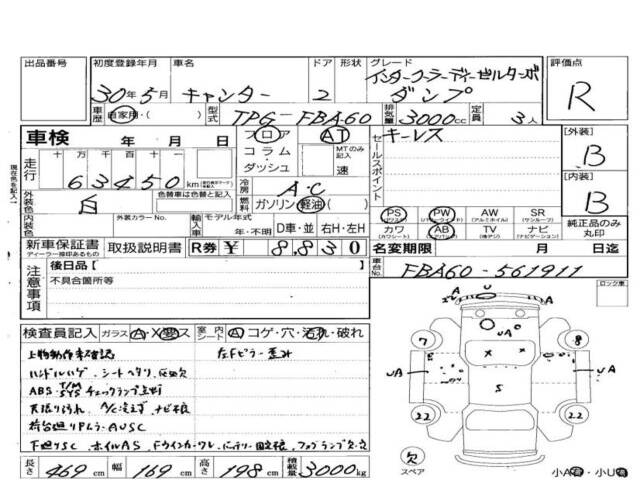 出品番号
初度登録年月 30年5月
車名 キャンター
ドア 2
形状
グレード インタークーラーディーゼルターボ ダンプ
評価点 R
車歴 自家用・( )
型式 TPG-FBA60
排気量 3000cc
定員 3人
車検 年 月 日
フロア
コラム
ダッシュ
AT
MTのみ記入
速
セールスポイント キーレス
[外装] B
[内装] B
現在色を記入
走行 十万千百十一
63450 km
冷房 A・C
燃料 ガソリン 軽油・( )
外装色 白
色替車は色替と記入
内装色
外装カラーNo.
輸入車
モデル年式
年・不明
D車・並
右H・左H
PS (パワステ)
PW (パワーウインド)
AW (アルミホイル)
SR (サンルーフ)
カワ
AB (エアバッグ)
TV
ナビ (ナビゲーション)
純正品のみ丸印
新車保証書
ディーラー捺印あるもの
取扱説明書
R券 ¥ 8830
名変期限 月 日迄
車台No. FBA60-561911
注意事項
後日品 [ ]
不具合箇所等
ロック車
検査員記入 ガラス A・X・ス
室内シート A コゲ・穴・汚れ・破れ
上物動作未確認
左Fピラー歪み
ハンドルハゲ シートヘタリ
ABS T/M SYS チェックランプ点灯
天張り汚れ A/C冷えず ナビ根
荷台廻りPムラ・AUSC
下廻りSC ホイルAS Fウインカーワレ バッテリー固定根
長さ 469 cm
幅 169 cm
高さ 198 cm
積載量 3000 kg
A
U
UA
7
8
UA
A
X
X
S
22
22
欠
スペア
小A有・小U有